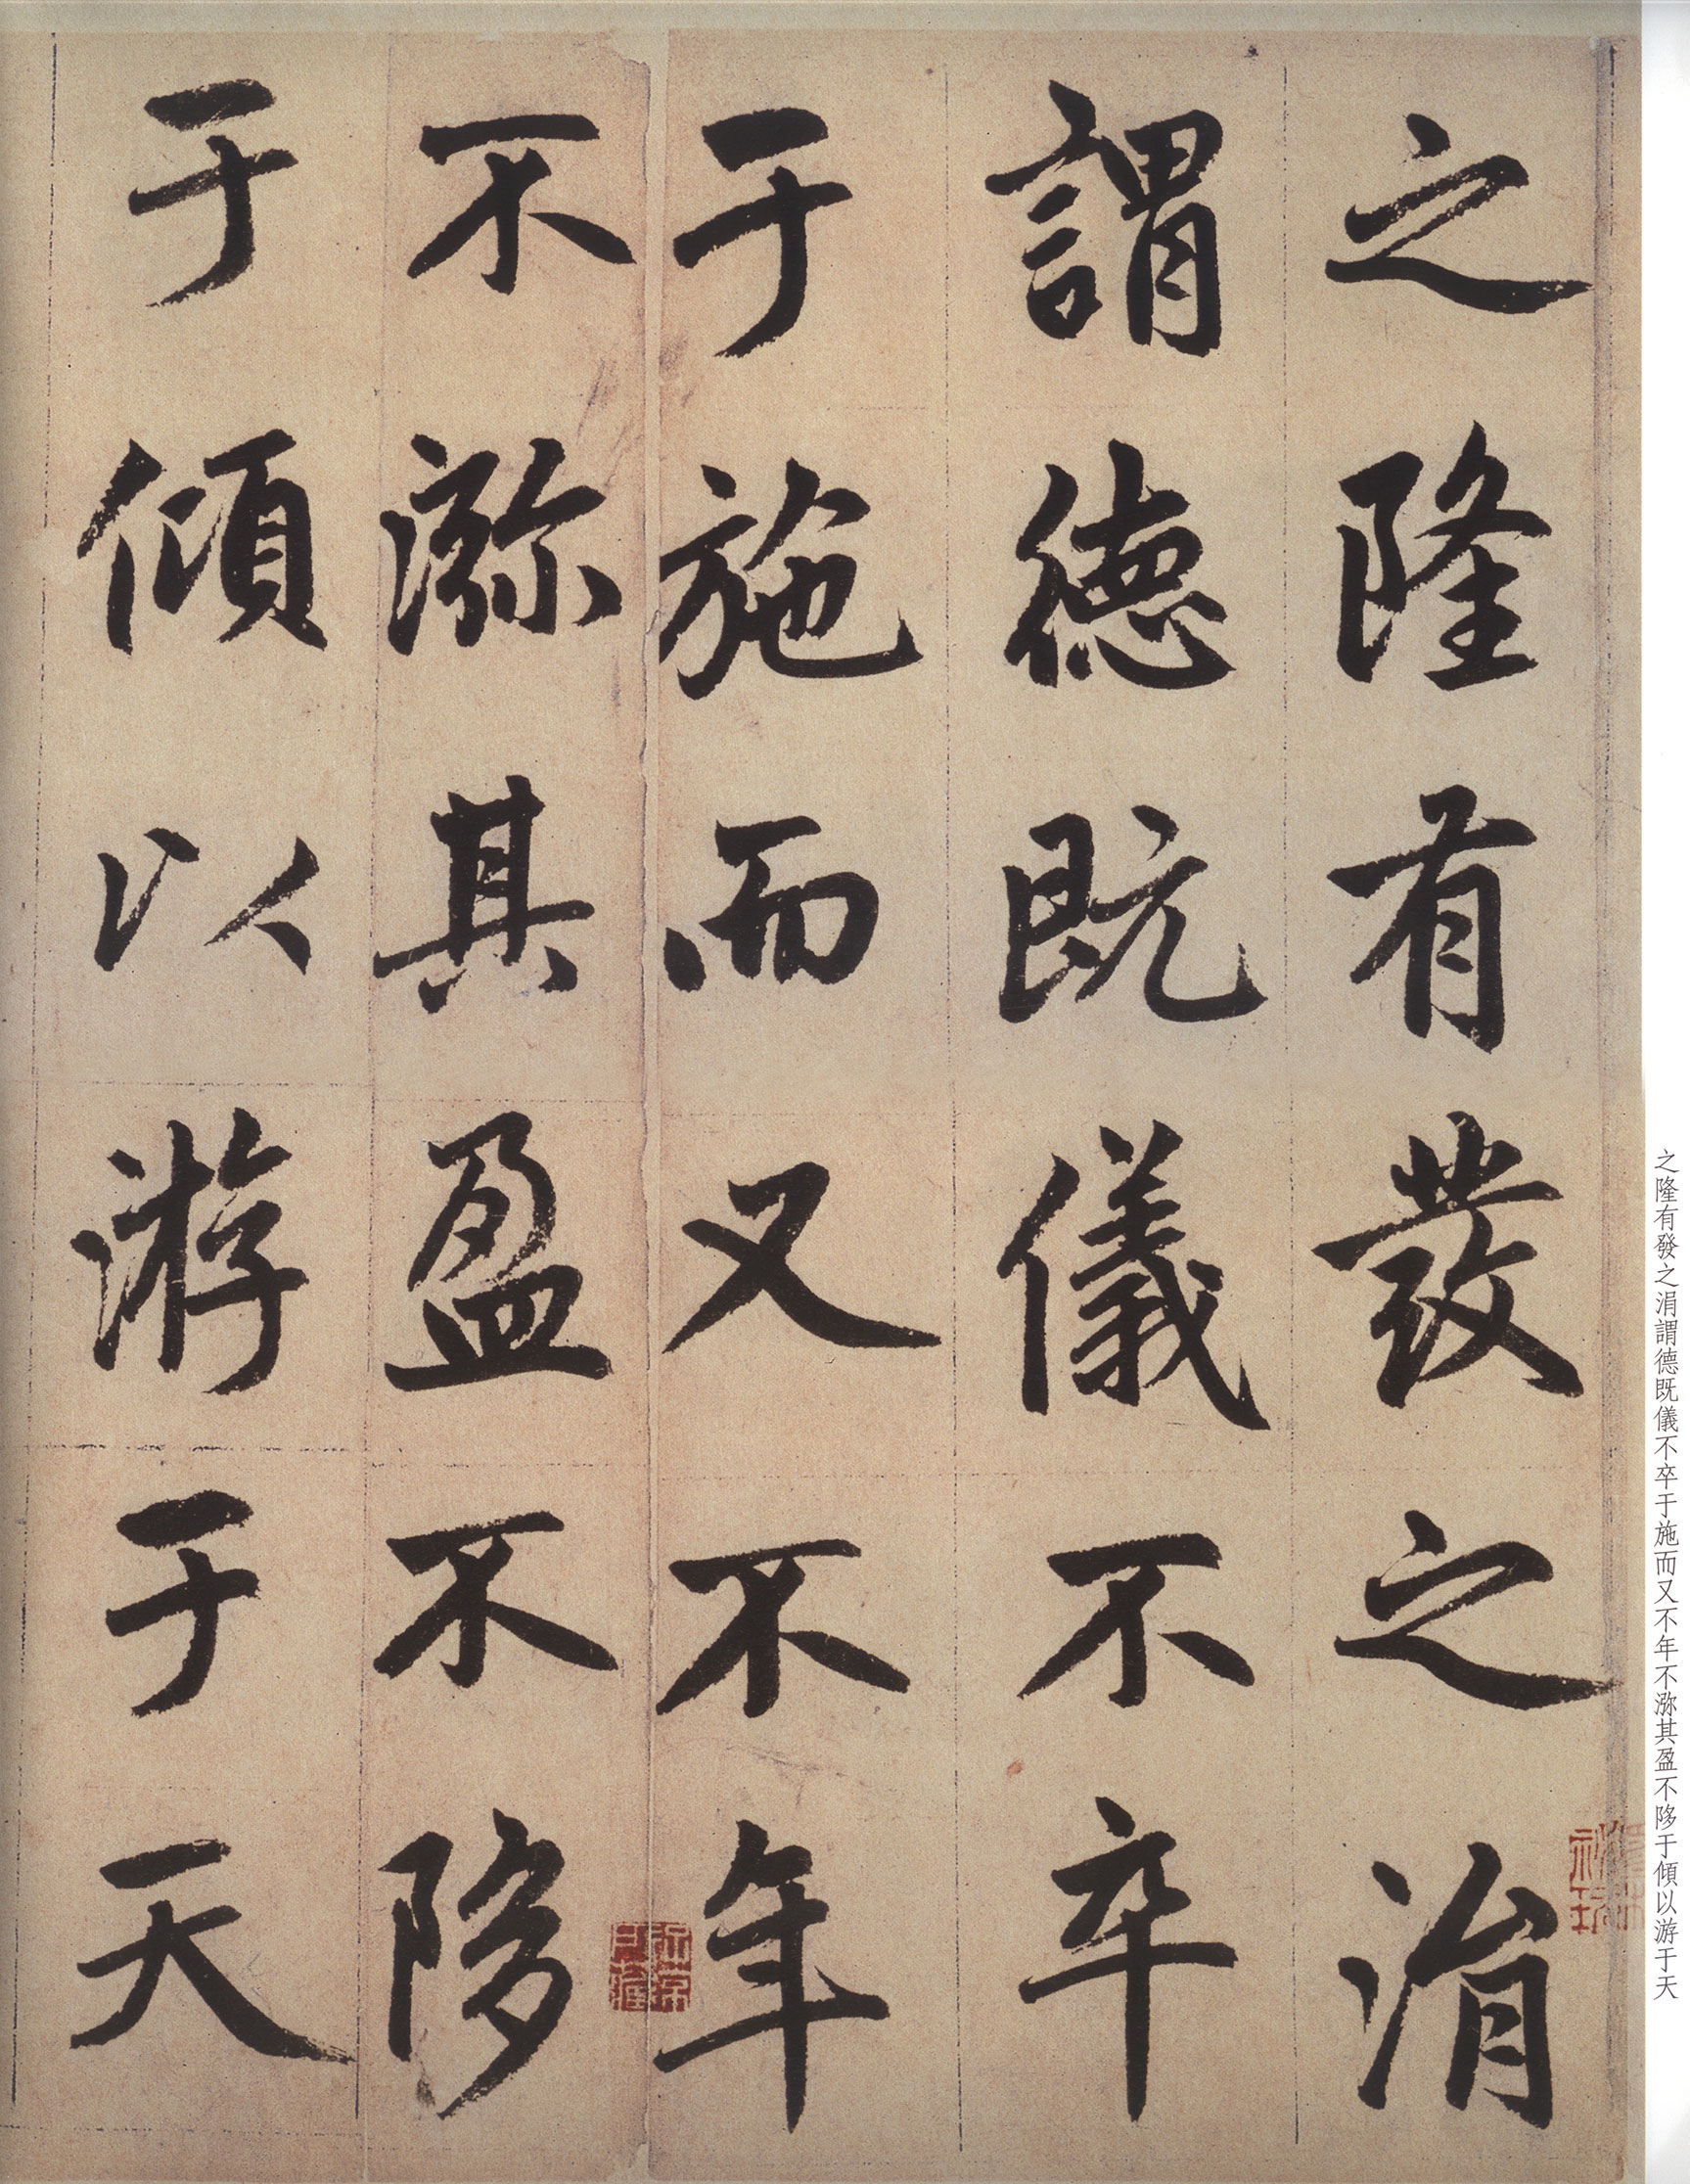 之隆有發之涓
謂德既儀不卒
于施而又不年
不㳽其盈不陊
于傾以游于天
之隆有發之涓謂德既儀不卒于施而又不年不㳽其盈不陊于傾以游于天